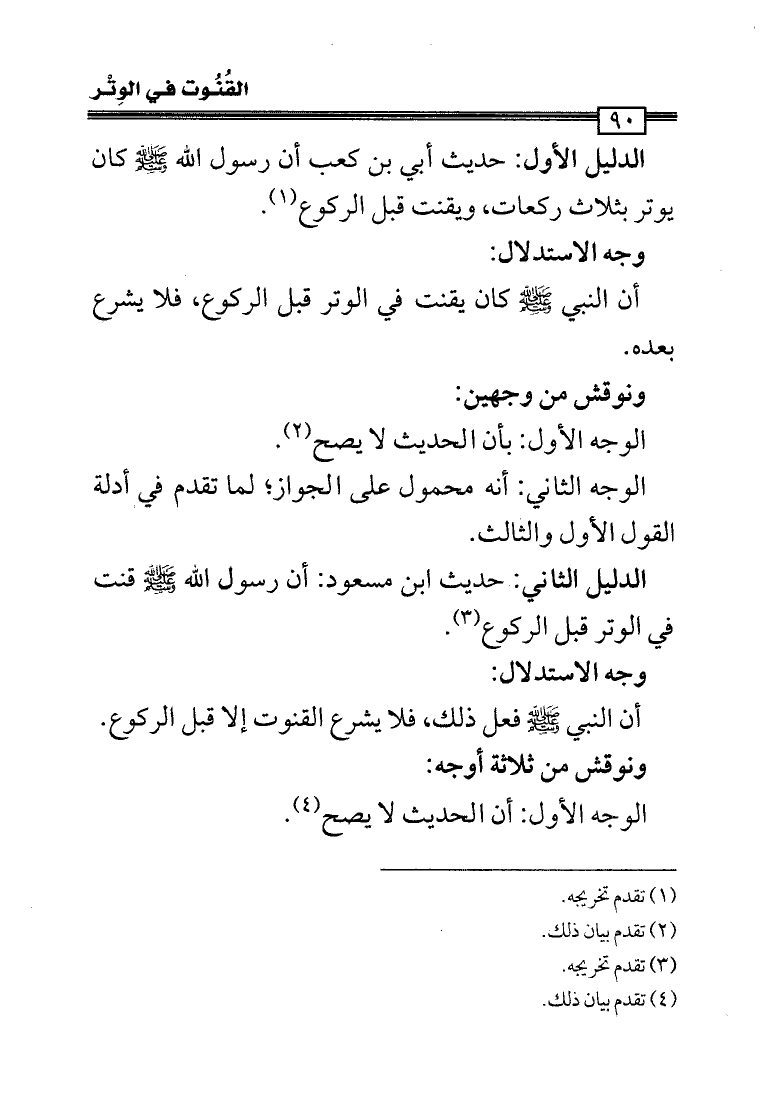 القُنُوت في الوِتْر
٩٠
الدليل الأول: حديث أبي بن كعب أن رسول الله ﷺ كان
يوتر بثلاث ركعات، ويقنت قبل الركوع(١).
وجه الاستدلال:
أن النبي ﷺ كان يقنت في الوتر قبل الركوع، فلا يشرع
بعده.
ونوقش من وجهين:
الوجه الأول: بأن الحديث لا يصح(٢).
الوجه الثاني: أنه محمول على الجواز؛ لما تقدم في أدلة
القول الأول والثالث.
الدليل الثاني: حديث ابن مسعود: أن رسول الله ﷺ قنت
في الوتر قبل الركوع(٣).
وجه الاستدلال:
أن النبي ﷺ فعل ذلك، فلا يشرع القنوت إلا قبل الركوع.
ونوقش من ثلاثة أوجه:
الوجه الأول: أن الحديث لا يصح(٤).
(١) تقدم تخريجه.
(٢) تقدم بيان ذلك.
(٣) تقدم تخريجه.
(٤) تقدم بيان ذلك.